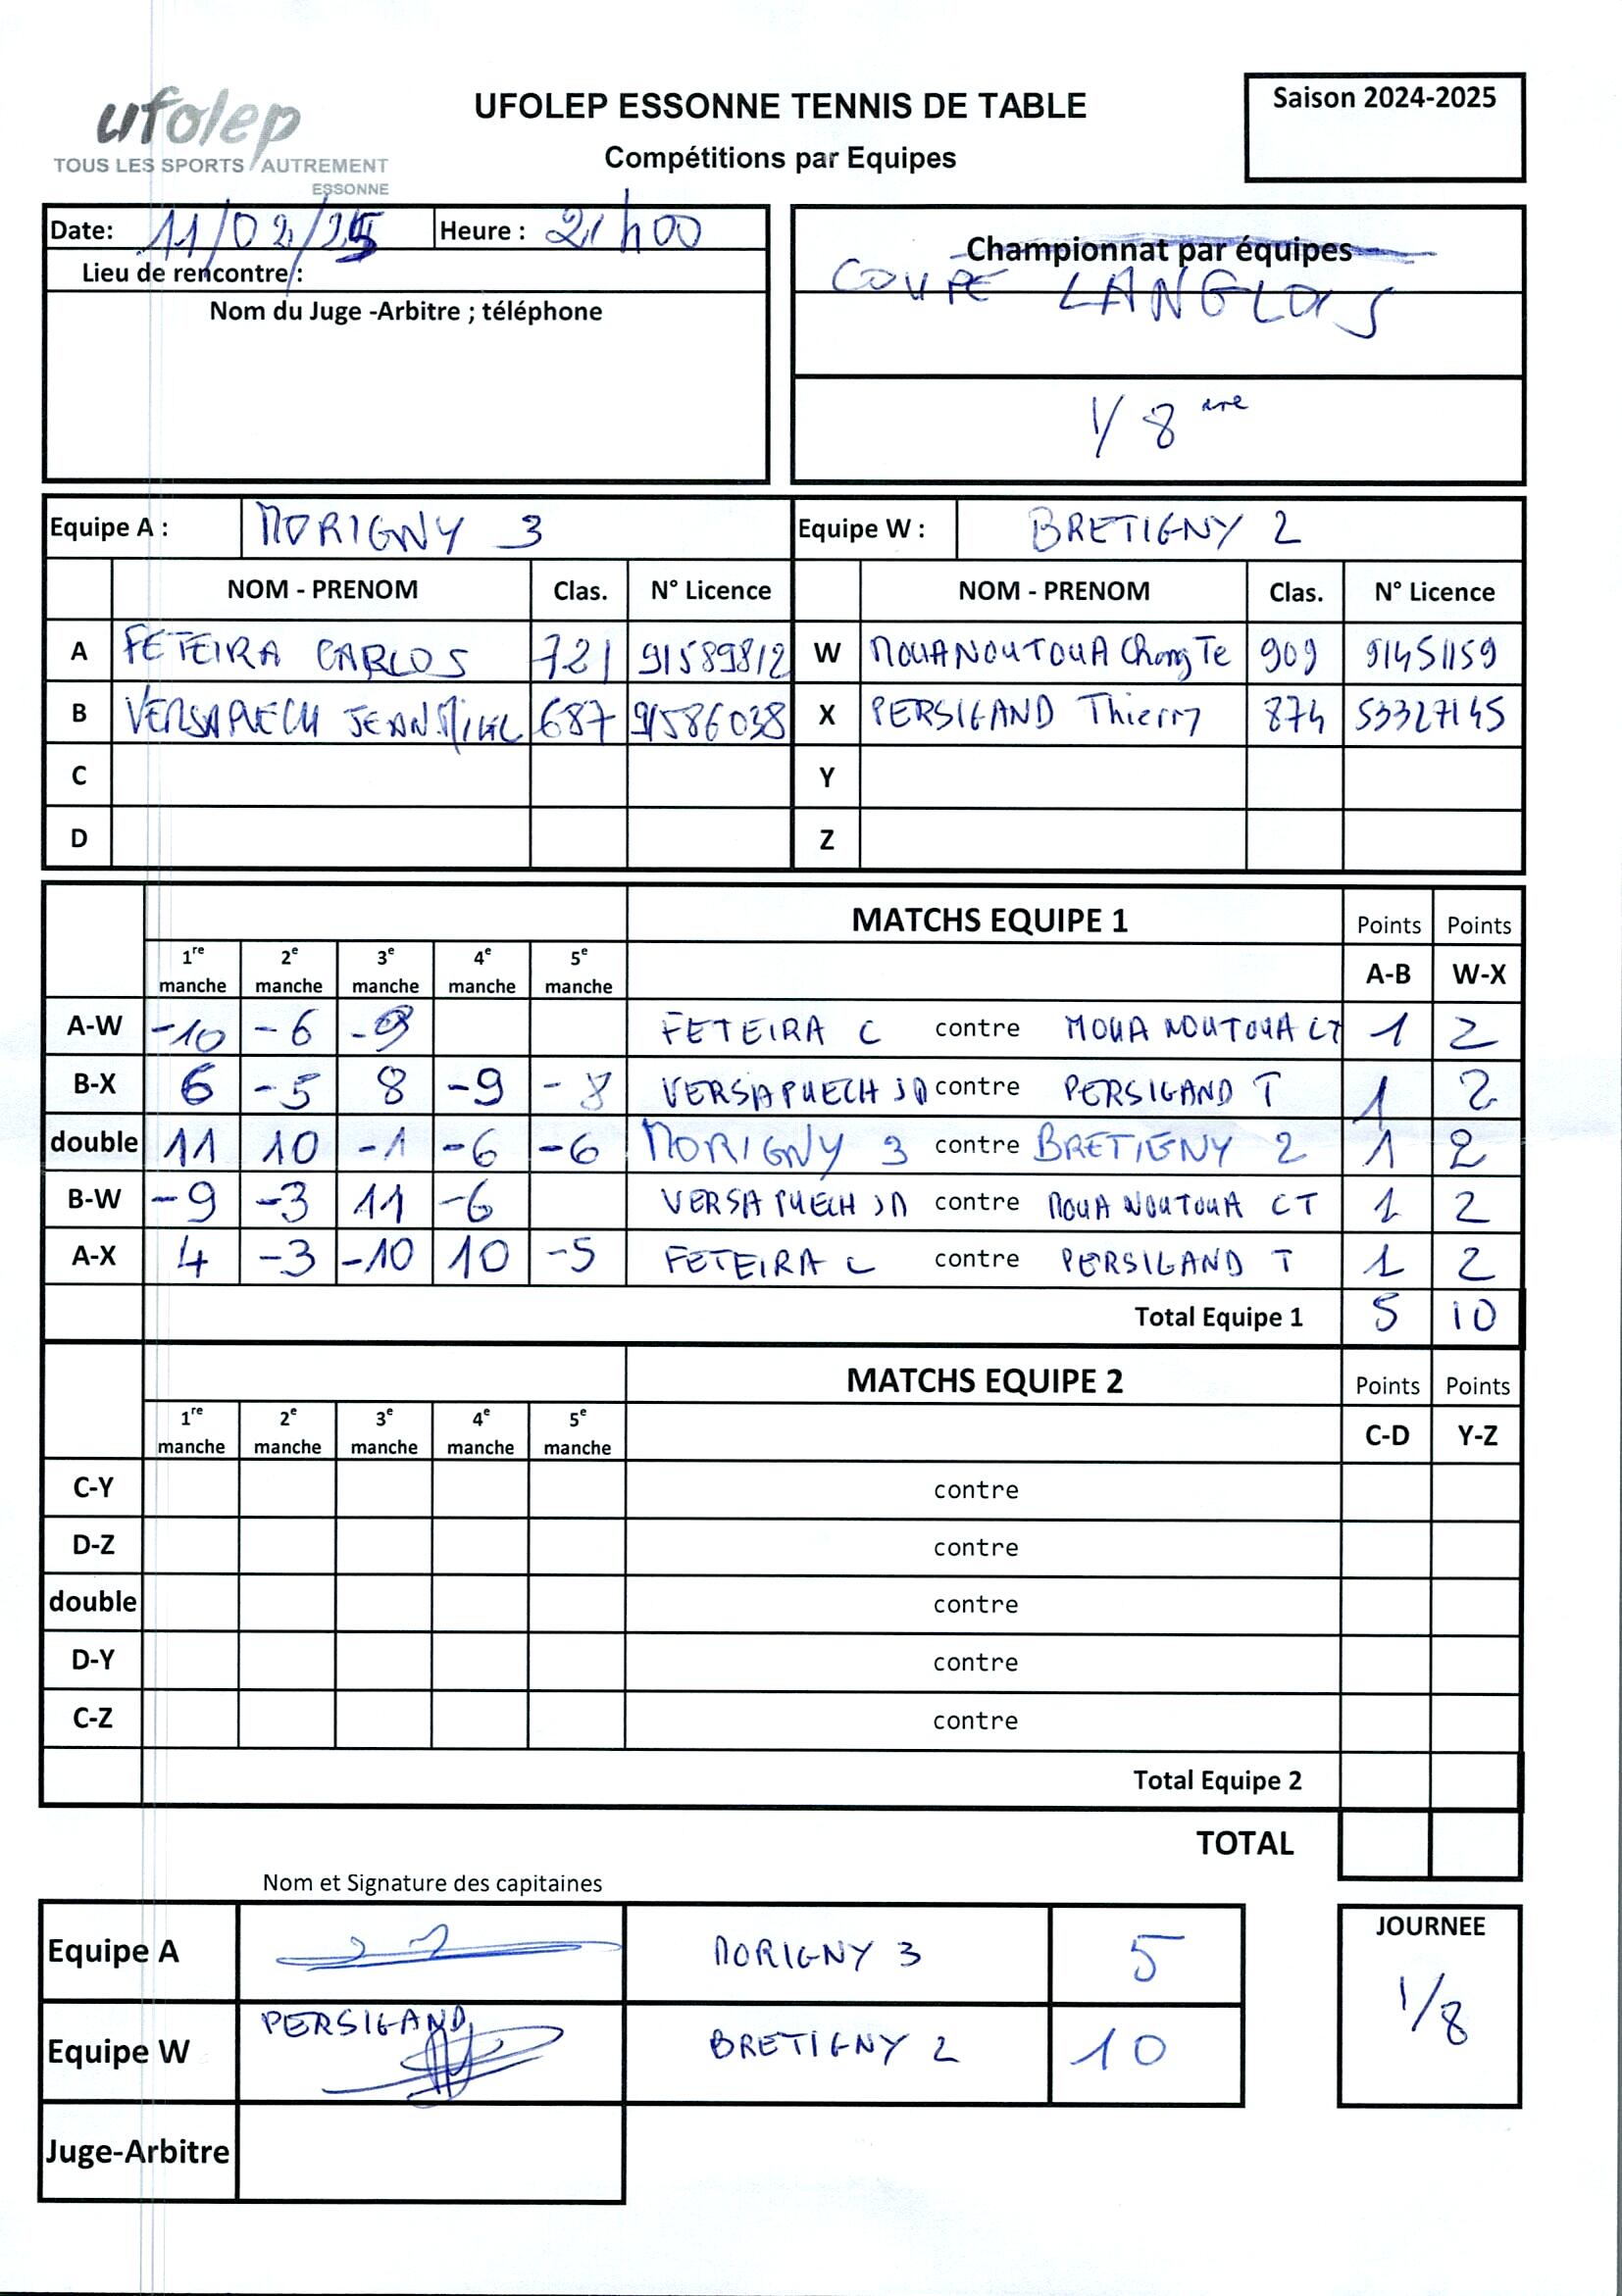 ufolep
TOUS LES SPORTS AUTREMENT
ESSONNE
UFOLEP ESSONNE TENNIS DE TABLE
Compétitions par Equipes
Saison 2024-2025
Date: 11/02/25 Heure : 21h00
Lieu de rencontre :
Nom du Juge -Arbitre ; téléphone
Championnat par équipes
COUPE LANGLOIS
1/8 ème
Equipe A : MORIGNY 3 Equipe W : BRETIGNY 2
NOM - PRENOM Clas. N° Licence NOM - PRENOM Clas. N° Licence
A FETEIRA CARLOS 721 91589812 W MOUANOUTOUA Chong Te 909 91451159
B VERSAPUECH JEAN MICHEL 687 91586038 X PERSIGAND Thierry 874 53327145
C Y
D Z
MATCHS EQUIPE 1 Points Points
1re manche 2e manche 3e manche 4e manche 5e manche A-B W-X
A-W -10 -6 -9 FETEIRA C contre MOUA NOUTOUA CT 1 2
B-X 6 -5 8 -9 -8 VERSAPUECH JM contre PERSIGAND T 1 2
double 11 10 -1 -6 -6 MORIGNY 3 contre BRETIGNY 2 1 2
B-W -9 -3 11 -6 VERSAPUECH JM contre MOUA NOUTOUA CT 1 2
A-X 4 -3 -10 10 -5 FETEIRA C contre PERSIGAND T 1 2
Total Equipe 1 5 10
MATCHS EQUIPE 2 Points Points
1re manche 2e manche 3e manche 4e manche 5e manche C-D Y-Z
C-Y contre
D-Z contre
double contre
D-Y contre
C-Z contre
Total Equipe 2
TOTAL
Nom et Signature des capitaines
Equipe A MORIGNY 3 5
JOURNEE
1/8
Equipe W PERSIGAND BRETIGNY 2 10
Juge-Arbitre